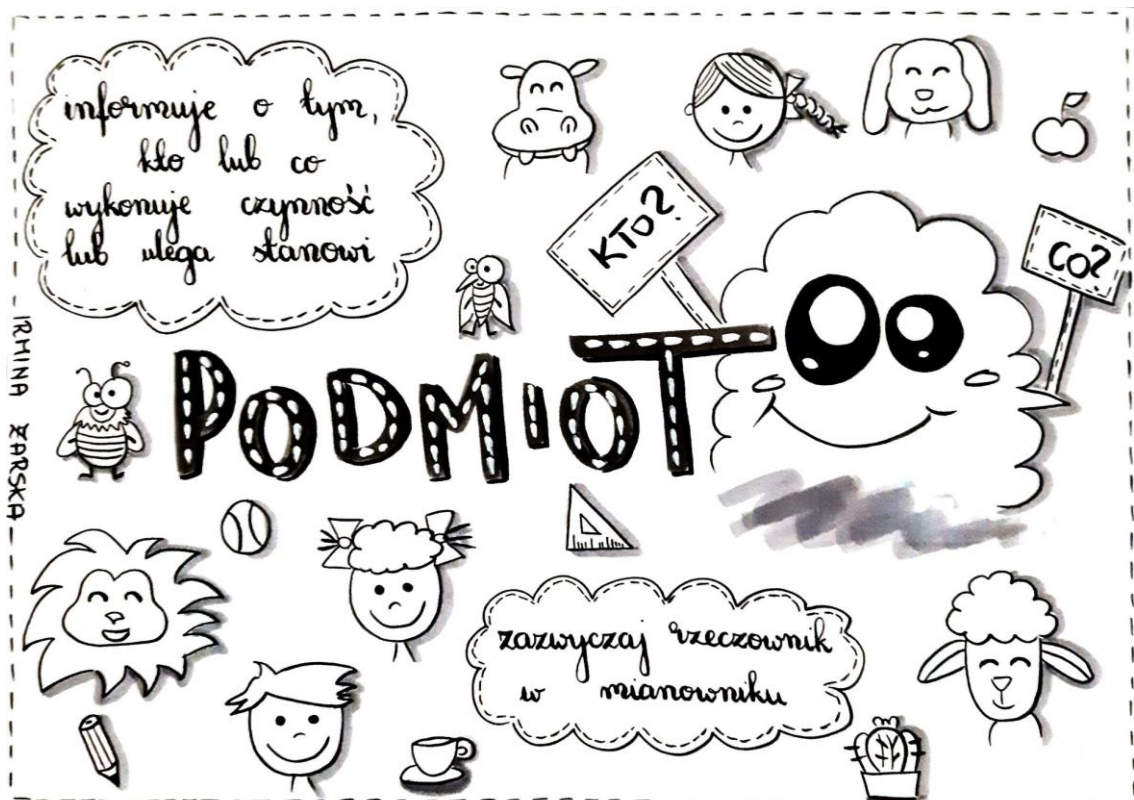 informuje o tym,
kto lub co
wykonuje czynność
lub ulega stanowi
KTO?
CO?
PODMIOT
IRMINA ŻARSKA
zazwyczaj rzeczownik
w mianowniku